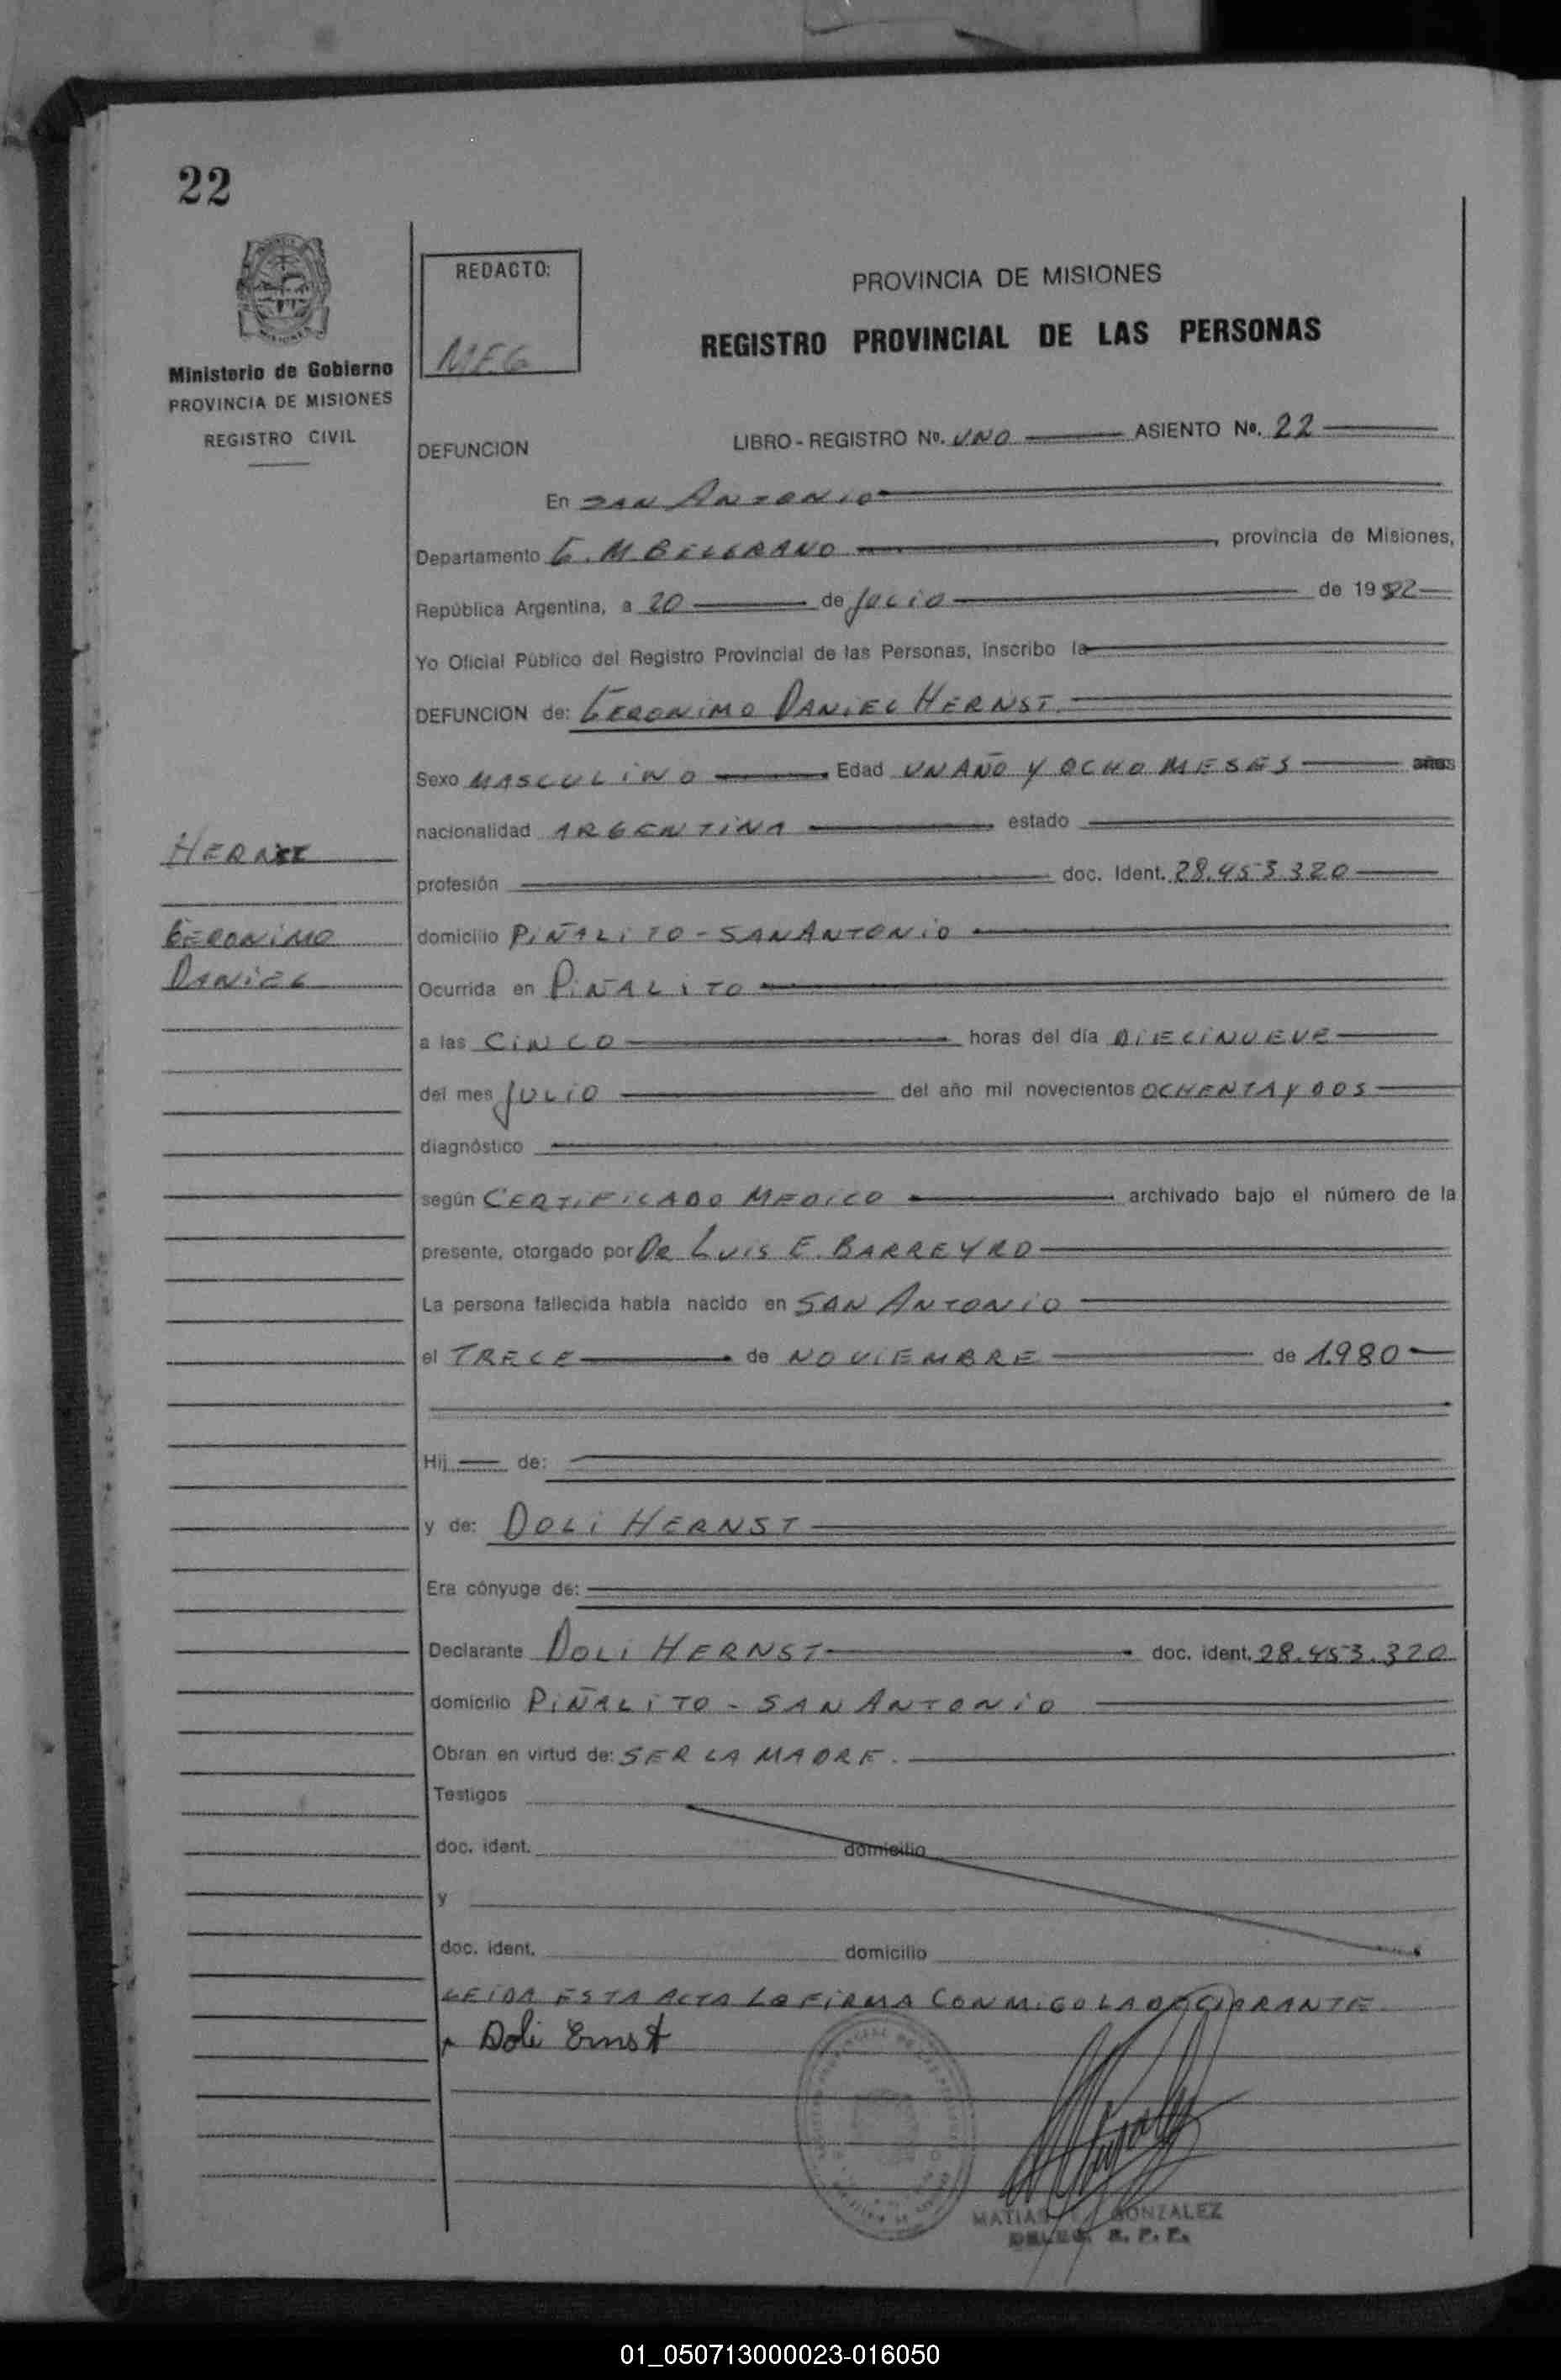 22
REDACTO:
MEG
Ministerio de Gobierno
PROVINCIA DE MISIONES
REGISTRO CIVIL
PROVINCIA DE MISIONES
REGISTRO PROVINCIAL DE LAS PERSONAS
DEFUNCION LIBRO - REGISTRO No. UNO ASIENTO No. 22
En SAN ANTONIO
Departamento G. M. BELGRANO, provincia de Misiones,
República Argentina, a 20 de JULIO de 1982
Yo Oficial Público del Registro Provincial de las Personas, inscribo la
DEFUNCION de: GERONIMO DANIEL HERNST
Sexo MASCULINO Edad UN AÑO Y OCHO MESES años
nacionalidad ARGENTINA estado
HERNST
profesión doc. Ident. 28.453.320
GERONIMO
domicilio PIÑALITO - SAN ANTONIO
DANIEL
Ocurrida en PIÑALITO
a las CINCO horas del día DIECINUEVE
del mes JULIO del año mil novecientos OCHENTA Y DOS
diagnóstico
según CERTIFICADO MEDICO archivado bajo el número de la
presente, otorgado por DR LUIS E. BARREYRO
La persona fallecida había nacido en SAN ANTONIO
el TRECE de NOVIEMBRE de 1.980
Hij de:
y de: DOLI HERNST
Era cónyuge de:
Declarante DOLI HERNST doc. ident. 28.453.320
domicilio PIÑALITO - SAN ANTONIO
Obran en virtud de: SER LA MADRE.
Testigos
doc. ident. domicilio
y
doc. ident. domicilio
LEIDA ESTA ACTA LA FIRMA CONMIGO LA DECLARANTE
Doli Ernst
MATIAS GONZALEZ
DELEG. R. P. P.
01_050713000023-016050